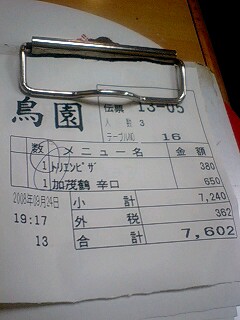 鳥園
伝票 13-05
人数 3
テーブルNo 16
数 メニュー名 金額
1 トリエンピザ 380
1 加茂鶴 辛口 650
2008年09月24日 小計 7,240
19:17 外税 362
13 合計 7,602